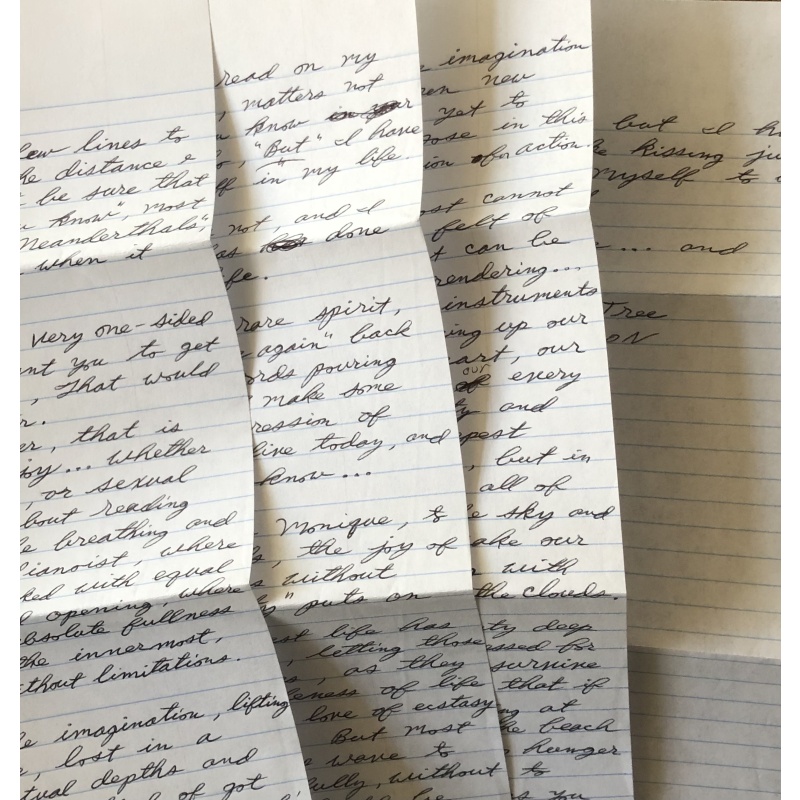 few lines to
distance
be sure that
know", most
Neanderthals",
when it
very one-sided
you to get
, That would
that is
... whether
, or sexual
about reading
breathing and
pianoist, where
with equal
opening, where
absolute fullness
the innermost,
without limitations.
imagination, lifting
, lost in a
depths and
of got
read on my
, matters not
know
, "But" I have
in my life.
not, and I
has done
life.
rare spirit,
again" back
words pouring
make some
of
live today, and
know...
Monique, to
, the joy of
without
" puts on
life has
, letting those
, as they
of life
love of ecstasy
But most
wave to
fully, without
be
imagination
new
yet to
in this
of action.
cannot
felt of
can be
rendering...
instruments
up our
, our
our
every
and
, but in
all of
sky and
our
with
the clouds.
deep
for
survive
that if
at
the beach
hunger
to
you
but I
kissing
myself to
... and
Tree
ON